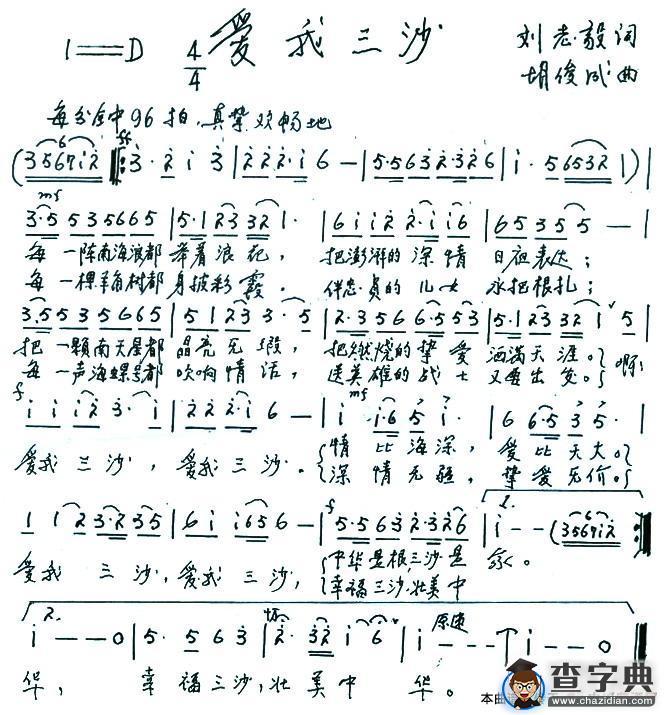 爱我三沙
1=D 4/4
刘志毅词
胡俊成曲
每分钟96拍 真挚欢畅地
(3·567i2 ‖: 3· 2 i 3 | 2 2 2·i 6 — | 5·5 6 3 2·3 2 6 | i· 5 6532 1 ) |
mf
3·5 5 3 5 6 6 5 | 5·1 2 3 3 2 1· | 6 i i 2 2·i i 6 | 6 5 3 5 5 — |
每一阵南海浪都举着浪花, 把澎湃的深情日夜表达;
每一棵羊角树都身披彩霞。 伴忠贞的儿女永把根扎;
3·5 5 3 5 6 6 5 | 5 1 2 3 3· 5 | 2·3 5 6 6·5 5 3 | 5·1 2 3 3 2 1 ˅ 5 |
把一颗南天星都晶亮无瑕, 把燃烧的挚爱洒满天涯。 啊!
每一声海螺号都吹响情话, 送英雄的战士又要出发。
f
i i i 2 3· i | 2 2 2·i 6 — | i· i·6 5 i· | 6 6·5 3 5· |
mf
爱我三沙, 爱我三沙。 情比海深, 爱比天大。
深情无疆, 挚爱无价。
1 1 2 3·2 3 5 | 6 i i 6 5 6 — | 5·5 6 3 2·3 2 6 | i — — (3567i2) :‖
f
爱我三沙, 爱我三沙, 中华是根,三沙是
幸福三沙,壮美中
2.
i — — 0 | 5· 5 6 3 | 2· 3 2 i 6 | i — — | i — — 0 ‖
原速
华, 幸福三沙,壮美中华。
查字典
www.chazidian.com
本曲